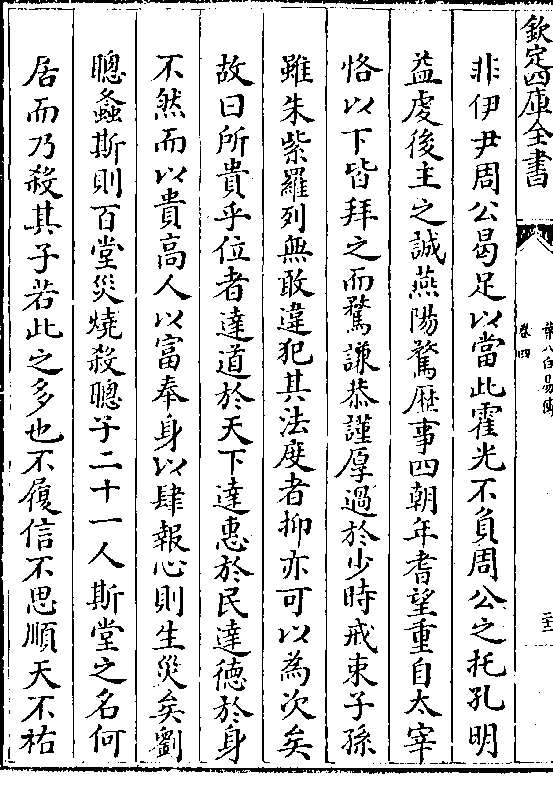 欽定四庫全書
葉八白易傳
卷四
非伊尹周公曷足以當此霍光不負周公之托孔明
益虔後主之誠燕陽騖歷事四朝年耆望重自太宰
恪以下皆拜之而騖謙恭謹厚過於少時戒束子孫
雖朱紫羅列無敢違犯其法度者抑亦可以為次矣
故曰所貴乎位者達道於天下達惠於民達德於身
不然而以貴高人以富奉身以肆報心則生災矣劉
聰螽斯則百堂災燒殺聰子二十一人斯堂之名何
居而乃殺其子若此之多也不履信不思順天不祐